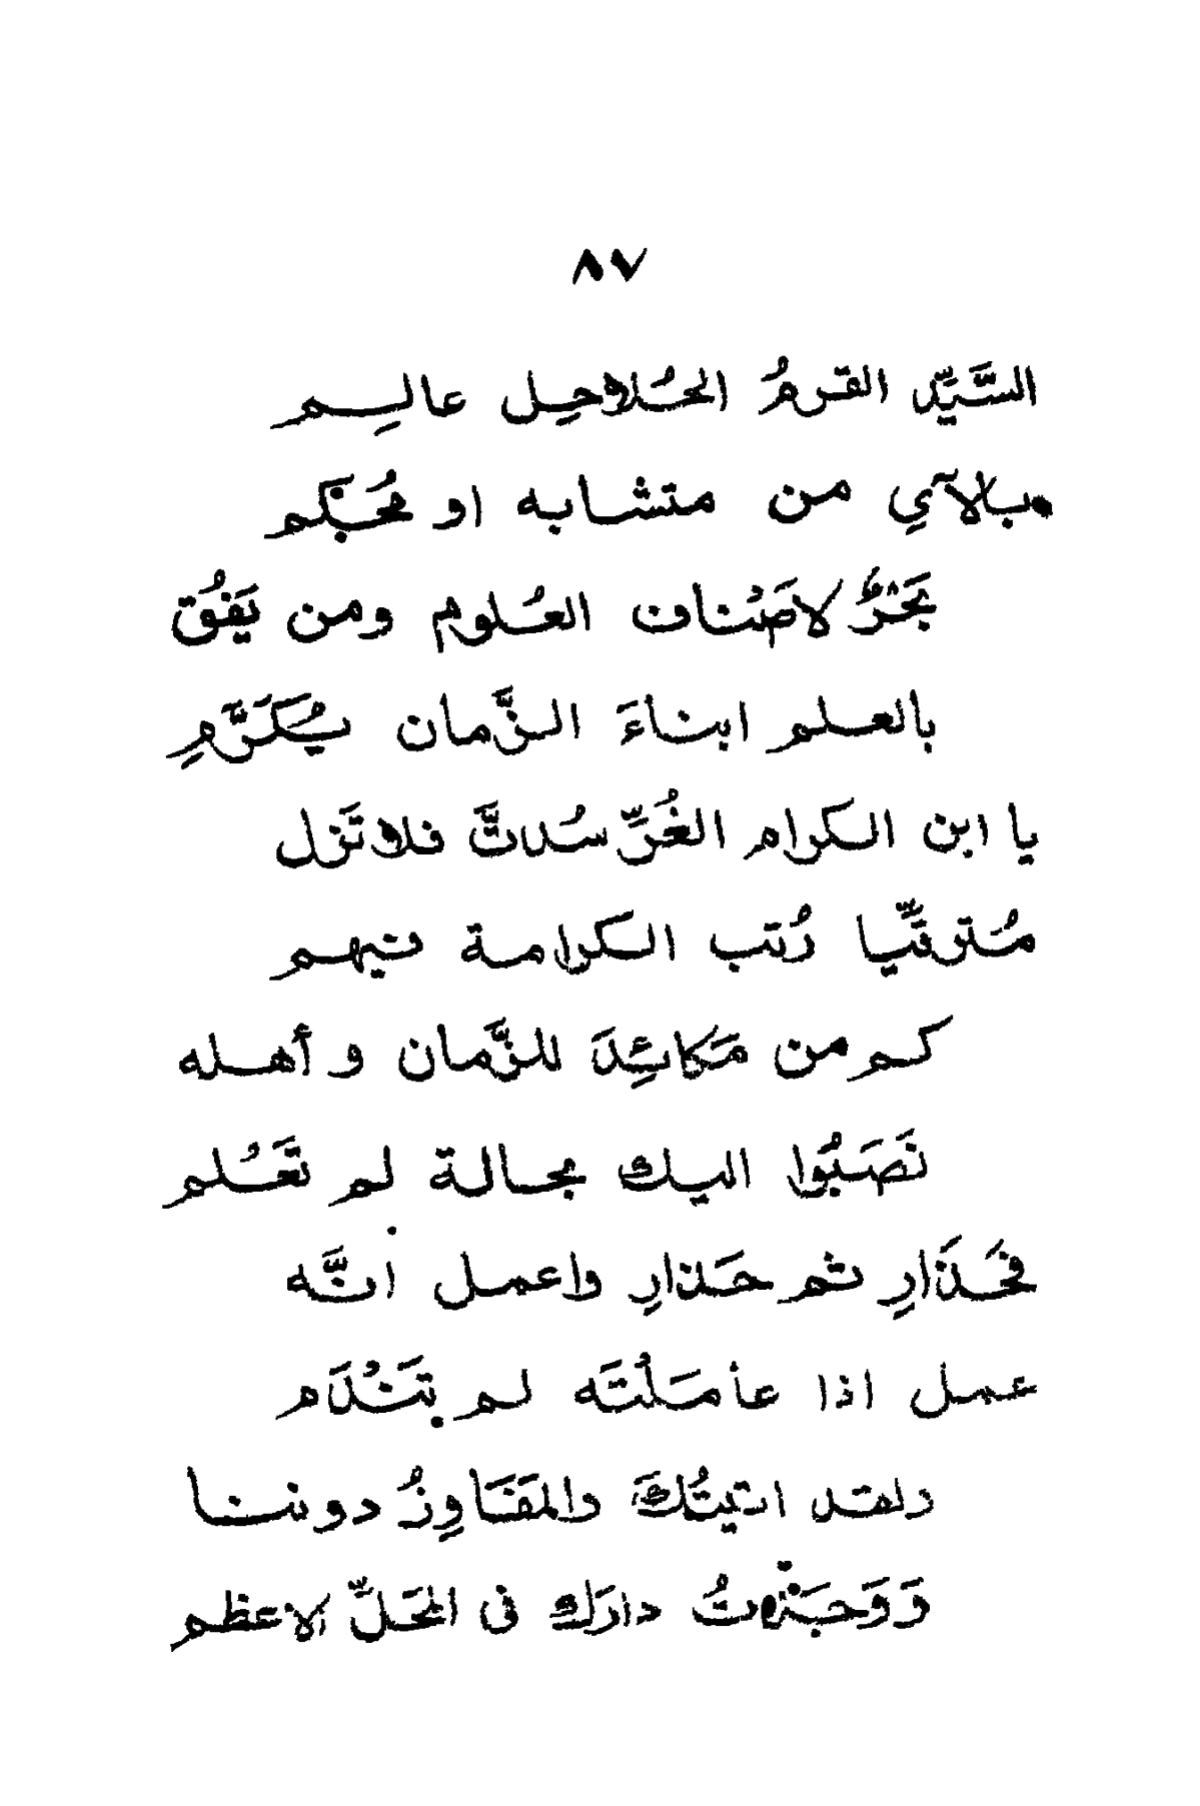 ٨٧
السَّيِّد القرمُ الحُلاحِل عالِم
بالآيِ من متشابه او مُحكَم
بَحْرٌ لاصْناف العُلوم ومن يَفُق
بالعلم ابناءَ الزَّمان يُكَرَّمِ
يا ابن الكرام الغُرِّ سُدتَّ فلا تَزل
مُترقّيا رُتب الكرامة فيهم
كم من مَكائِدَ للزَّمان وأهله
نَصَبُوا اليك بحالة لم تَعْلم
فحَذَارِ ثم حَذارِ واعمل انَّه
عمل اذا عأمَلْتَه لم تَنْدَم
ولقد اتيتُكَ والمفَاوِزُ دوننا
وَوَجَدْتُ دارَك فى المحَلِّ الاعظم